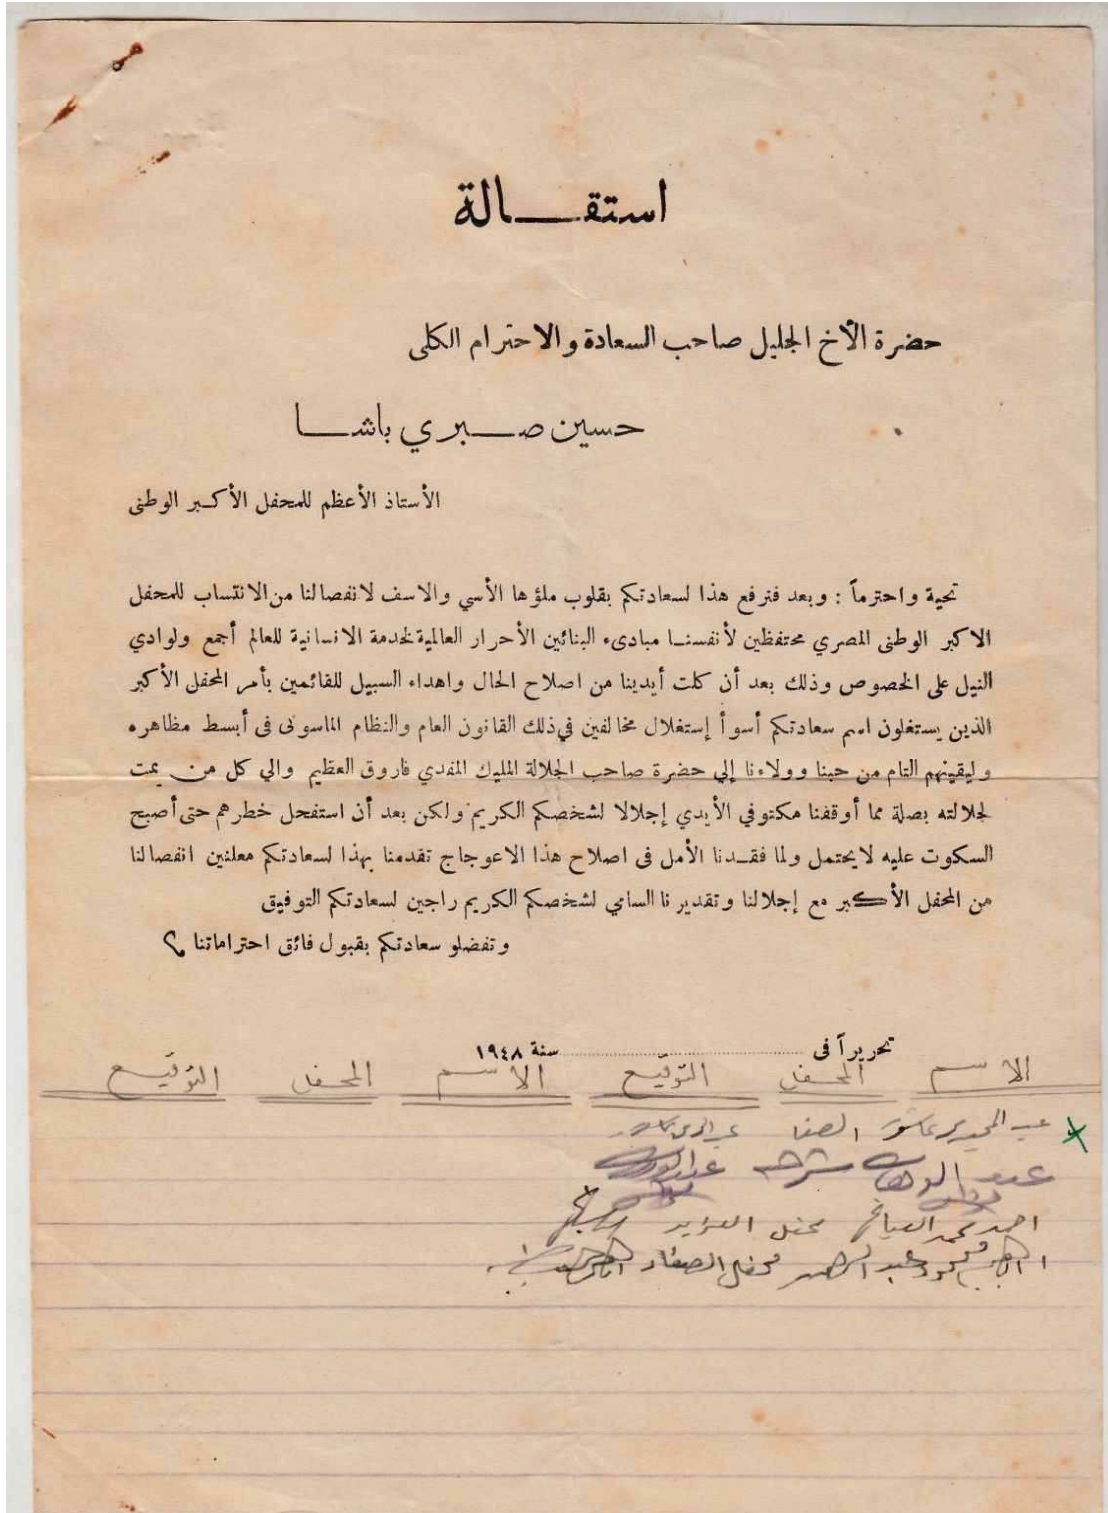 استقالة
حضرة الأخ الجليل صاحب السعادة والاحترام الكلى
حسين صبري باشا
الأستاذ الأعظم للمحفل الأكبر الوطنى
تحية واحترماً : وبعد فنرفع هذا لسعادتكم بقلوب ملؤها الأسي والاسف لانفصالنا من الانتساب للمحفل
الاكبر الوطنى المصري محتفظين لأنفسنا مبادىء البنائين الأحرار العالمية لخدمة الانسانية للعالم أجمع ولوادي
النيل على الخصوص وذلك بعد أن كلت أيدينا من اصلاح الحال واهداء السبيل للقائمين بأمر المحفل الأكبر
الذين يستغلون اسم سعادتكم أسوأ إستغلال مخالفين في ذلك القانون العام والنظام الماسونى فى أبسط مظاهره
وليقينهم التام من حبنا وولاءنا إلي حضرة صاحب الجلالة المليك المفدي فاروق العظيم والي كل من يمت
لجلالته بصلة مما أوقفنا مكتوفي الأيدي إجلالا لشخصكم الكريم ولكن بعد أن استفحل خطرهم حتى أصبح
السكوت عليه لايحتمل ولما فقدنا الأمل فى اصلاح هذا الاعوجاج تقدمنا بهذا لسعادتكم معلنين انفصالنا
من المحفل الأكبر مع إجلالنا وتقديرنا السامي لشخصكم الكريم راجين لسعادتكم التوفيق
وتفضلو سعادتكم بقبول فائق احتراماتنا
تحريراً فى ........ سنة ١٩٤٨
الاسم المحفل التوقيع الاسم المحفل التوقيع
عبد الصفا
عبد الوهاب
احمد محمد محفل
محمود عبد محفل الصفا